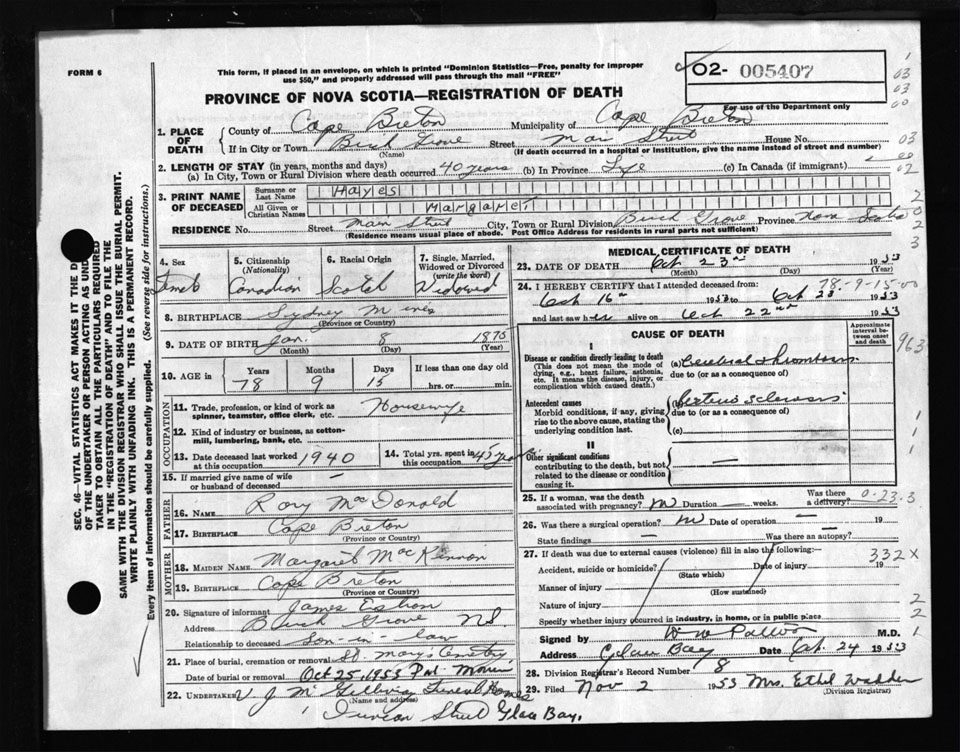 FORM 6
This form, if placed in an envelope, on which is printed "Dominion Statistics—Free, penalty for improper
use $50," and properly addressed will pass through the mail "FREE"
02- 005407
For use of the Department only
PROVINCE OF NOVA SCOTIA—REGISTRATION OF DEATH
1. PLACE OF DEATH
County of Cape Breton Municipality of Cape Breton
If in City or Town Birch Grove Street Main Street House No.
(Name) (If death occurred in a hospital or institution, give the name instead of street and number)
2. LENGTH OF STAY (in years, months and days)
(a) In City, Town or Rural Division where death occurred 40 years (b) In Province Life (c) In Canada (if immigrant)
3. PRINT NAME OF DECEASED
Surname or Last Name Hayes
All Given or Christian Names Margaret
RESIDENCE No. Street Main Street City, Town or Rural Division Birch Grove Province Nova Scotia
(Residence means usual place of abode. Post Office Address for residents in rural parts not sufficient)
4. Sex
5. Citizenship (Nationality) Canadian
6. Racial Origin Scotch
7. Single, Married, Widowed or Divorced (write the word) Widowed
8. BIRTHPLACE Sydney Mines
(Province or Country)
9. DATE OF BIRTH Jan. 8 1875
(Month) (Day) (Year)
10. AGE in Years Months Days If less than one day old
78 9 15 hrs. or min.
OCCUPATION
11. Trade, profession, or kind of work as spinner, teamster, office clerk, etc. Housewife
12. Kind of industry or business, as cotton-mill, lumbering, bank, etc.
13. Date deceased last worked at this occupation 1940
14. Total yrs. spent in this occupation 45 years
15. If married give name of wife or husband of deceased —
FATHER
16. NAME Rory MacDonald
17. BIRTHPLACE Cape Breton
(Province or Country)
MOTHER
18. MAIDEN NAME Margaret MacKinnon
19. BIRTHPLACE Cape Breton
(Province or Country)
20. Signature of informant James
Address Birch Grove N.S.
Relationship to deceased Son-in-law
21. Place of burial, cremation or removal St. Marys Cemetery
Date of burial or removal Oct 25, 1953 Port Morien
22. UNDERTAKER V. J. McGillivray Funeral Homes
(Name and address)
Street Glace Bay.
MEDICAL CERTIFICATE OF DEATH
23. DATE OF DEATH Oct 23rd 1953
(Month) (Day) (Year)
78-9-15-00
24. I HEREBY CERTIFY that I attended deceased from:
Oct 16th 1953 to Oct 23 1953
and last saw her alive on Oct 22nd 1953
CAUSE OF DEATH
Approximate interval between onset and death
963
I
Disease or condition directly leading to death
(This does not mean the mode of dying, e.g., heart failure, asthenia, etc. It means the disease, injury, or complication which caused death.)
(a) Cerebral Thrombosis
due to (or as a consequence of)
Antecedent causes
Morbid conditions, if any, giving rise to the above cause, stating the underlying condition last.
(b) Arteriosclerosis
due to (or as a consequence of)
(c)
II
Other significant conditions
contributing to the death, but not related to the disease or condition causing it.
—
25. If a woman, was the death associated with pregnancy? Duration — weeks. Was there a delivery?
0-23-3
26. Was there a surgical operation? Date of operation — 19
State findings — Was there an autopsy? —
27. If death was due to external causes (violence) fill in also the following:—
332X
Accident, suicide or homicide? Date of injury 19
(State which)
Manner of injury
(How sustained)
Nature of injury
Specify whether injury occurred in industry, in home, or in public place
Signed by M.D.
Address Glace Bay Date Oct 24 1953
28. Division Registrar's Record Number 8
29. Filed Nov 2 1953 Mrs. Ethel Wadden
(Division Registrar)
SEC. 46—VITAL STATISTICS ACT MAKES IT THE
OF THE UNDERTAKER OR PERSON ACTING AS
TAKER TO OBTAIN ALL THE PARTICULARS REQUIRED
IN THE "REGISTRATION OF DEATH" AND TO FILE THE
SAME WITH THE DIVISION REGISTRAR WHO SHALL ISSUE THE BURIAL PERMIT.
WRITE PLAINLY WITH UNFADING INK. THIS IS A PERMANENT RECORD.
Every item of information should be carefully supplied. (See reverse side for instructions.)
1
03
03
00
03
00
02
2
0
2
3
1
1
1
2
2
1